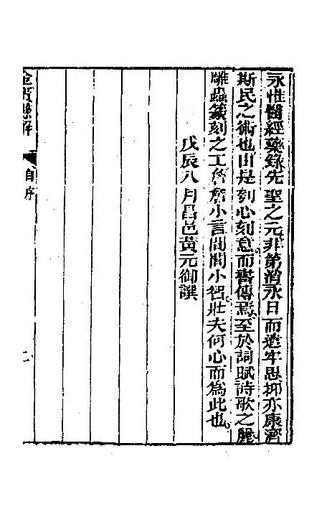 永惟醫經藥錄先聖之元非第消永日而遣牢思抑亦康濟
斯民之術也由是刻心刻意而書傳焉至於詞賦詩歌之麗
雕蟲篆刻之工詹詹小言間間小智壯夫何心而為此也
戊辰八月昌邑黃元御譔
金匱懸解
自序
二